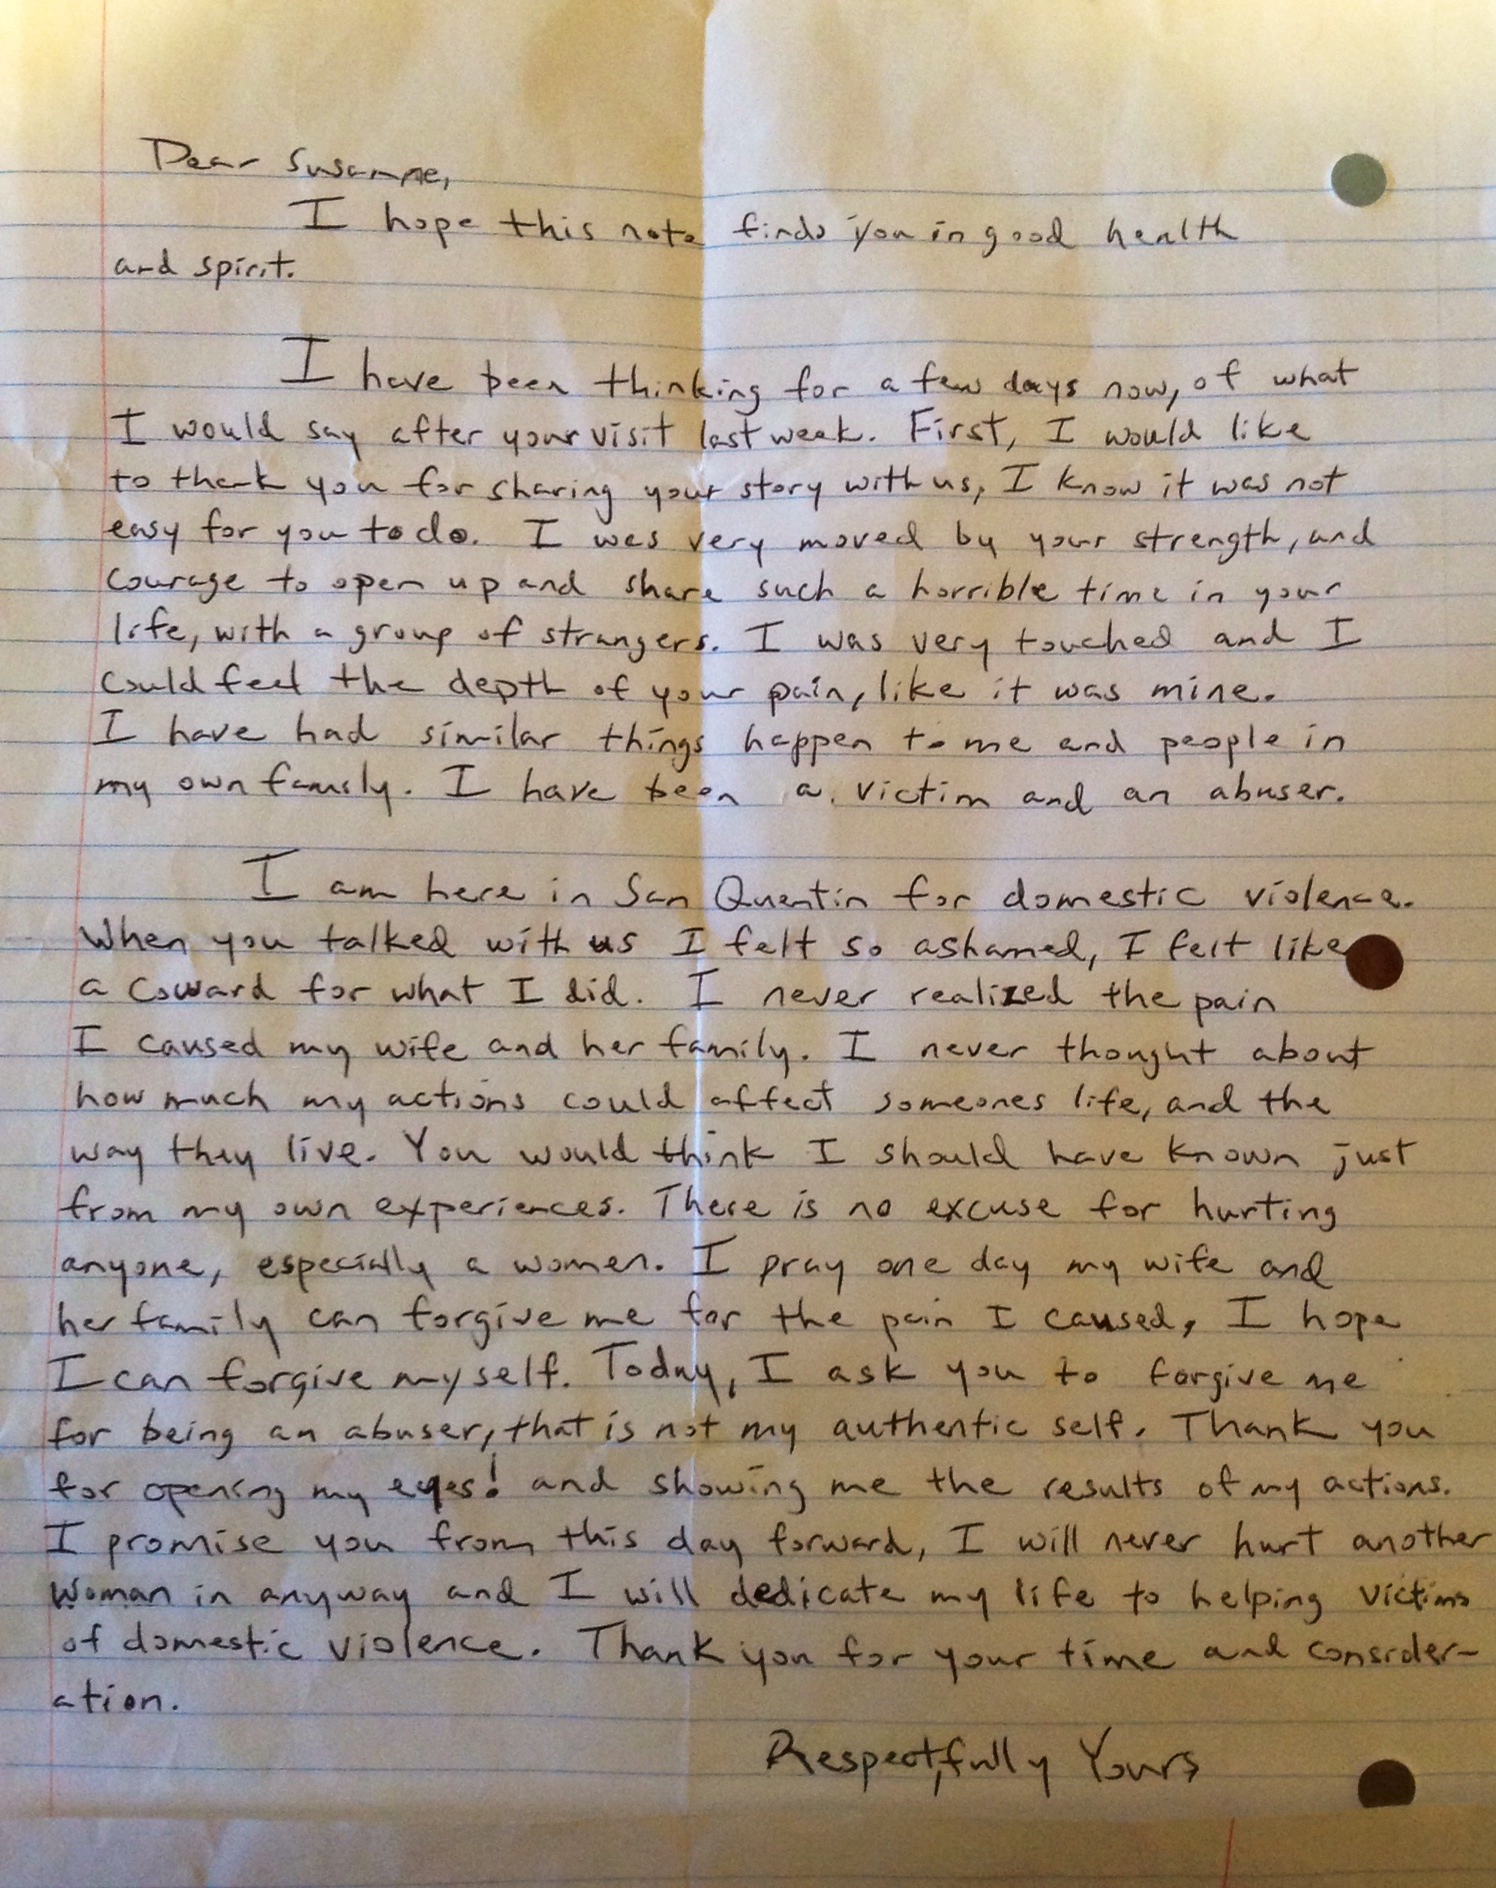 Dear Susanne,
I hope this note finds you in good health
and spirit.
I have been thinking for a few days now, of what
I would say after your visit last week. First, I would like
to thank you for sharing your story with us, I know it was not
easy for you to do. I was very moved by your strength, and
courage to open up and share such a horrible time in your
life, with a group of strangers. I was very touched and I
could feel the depth of your pain, like it was mine.
I have had similar things happen to me and people in
my own family. I have been a victim and an abuser.
I am here in San Quentin for domestic violence.
When you talked with us I felt so ashamed, I felt like
a coward for what I did. I never realized the pain
I caused my wife and her family. I never thought about
how much my actions could affect someones life, and the
way they live. You would think I should have known just
from my own experiences. There is no excuse for hurting
anyone, especially a women. I pray one day my wife and
her family can forgive me for the pain I caused, I hope
I can forgive myself. Today, I ask you to forgive me
for being an abuser, that is not my authentic self. Thank you
for opening my eyes! and showing me the results of my actions.
I promise you from this day forward, I will never hurt another
woman in anyway and I will dedicate my life to helping victims
of domestic violence. Thank you for your time and consider-
ation.
Respectfully Yours